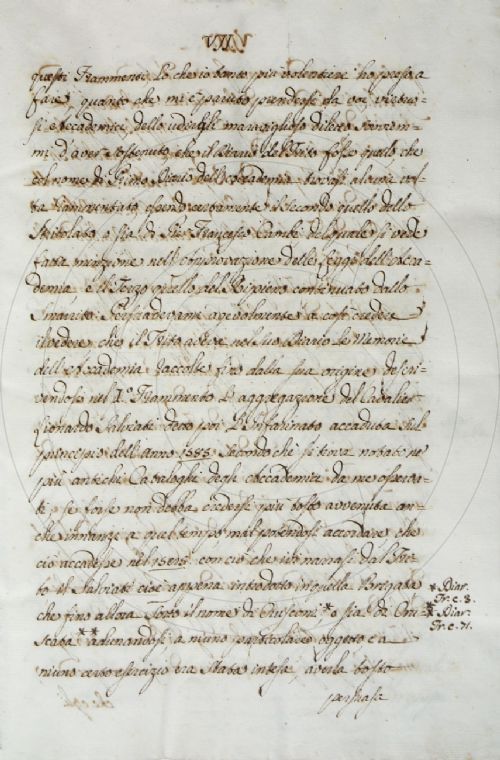 VII
questi Frammenti. Il che io tanto più volentieri ho preso a
fare, quanto che mi è paruto prendersi da voi, virtuo-
si Accademici, dello udirgli maraviglioso diletto. Sovvien-
mi d'aver sostenuto, che il Diario del Trito fosse quello che
col nome di Primo Diario dell'Accademia trovasi alcune vol-
te rammentato, essendo certamente il secondo quello dello
Stritolato, o sia di Pier Francesco Cambi, del quale si vede
fatta menzione nell'approvazione delle Leggi dell'Acca-
demia, e il Terzo quello del Ripieno continuato dallo
Smarrito. Persuadevami agevolmente a così credere
il vedere che il Trito aveva nel suo Diario le Memorie
dell'Accademia raccolte fino dalla sua origine descri-
vendosi nel I.° Frammento l'aggregazione del Cavalier
Lionardo Salviati detto poi l'Infarinato accaduta sul
principio dell'anno 1583 secondo che si trova notato ne'
più antichi Cataloghi degli Accademici da me osserva-
ti, se forse non debba credersi più tosto avvenuta an-
che innanzi a quel tempo mal potendosi accordare che
ciò accadesse nel 1583 con ciò che ivi narrasi dal Tri-
to il Salviati cioè appena introdotto in quella Brigata
che fino allora sotto il nome di Crusconi * o sia da Cru-
scata ** adunandosi, a niuno particolare oggetto e a
niuno certo esercizio era stata intesa, averla tosto
persuasa
* Diar.
Tr. c. 8.
* Diar.
Tr. c. 71.